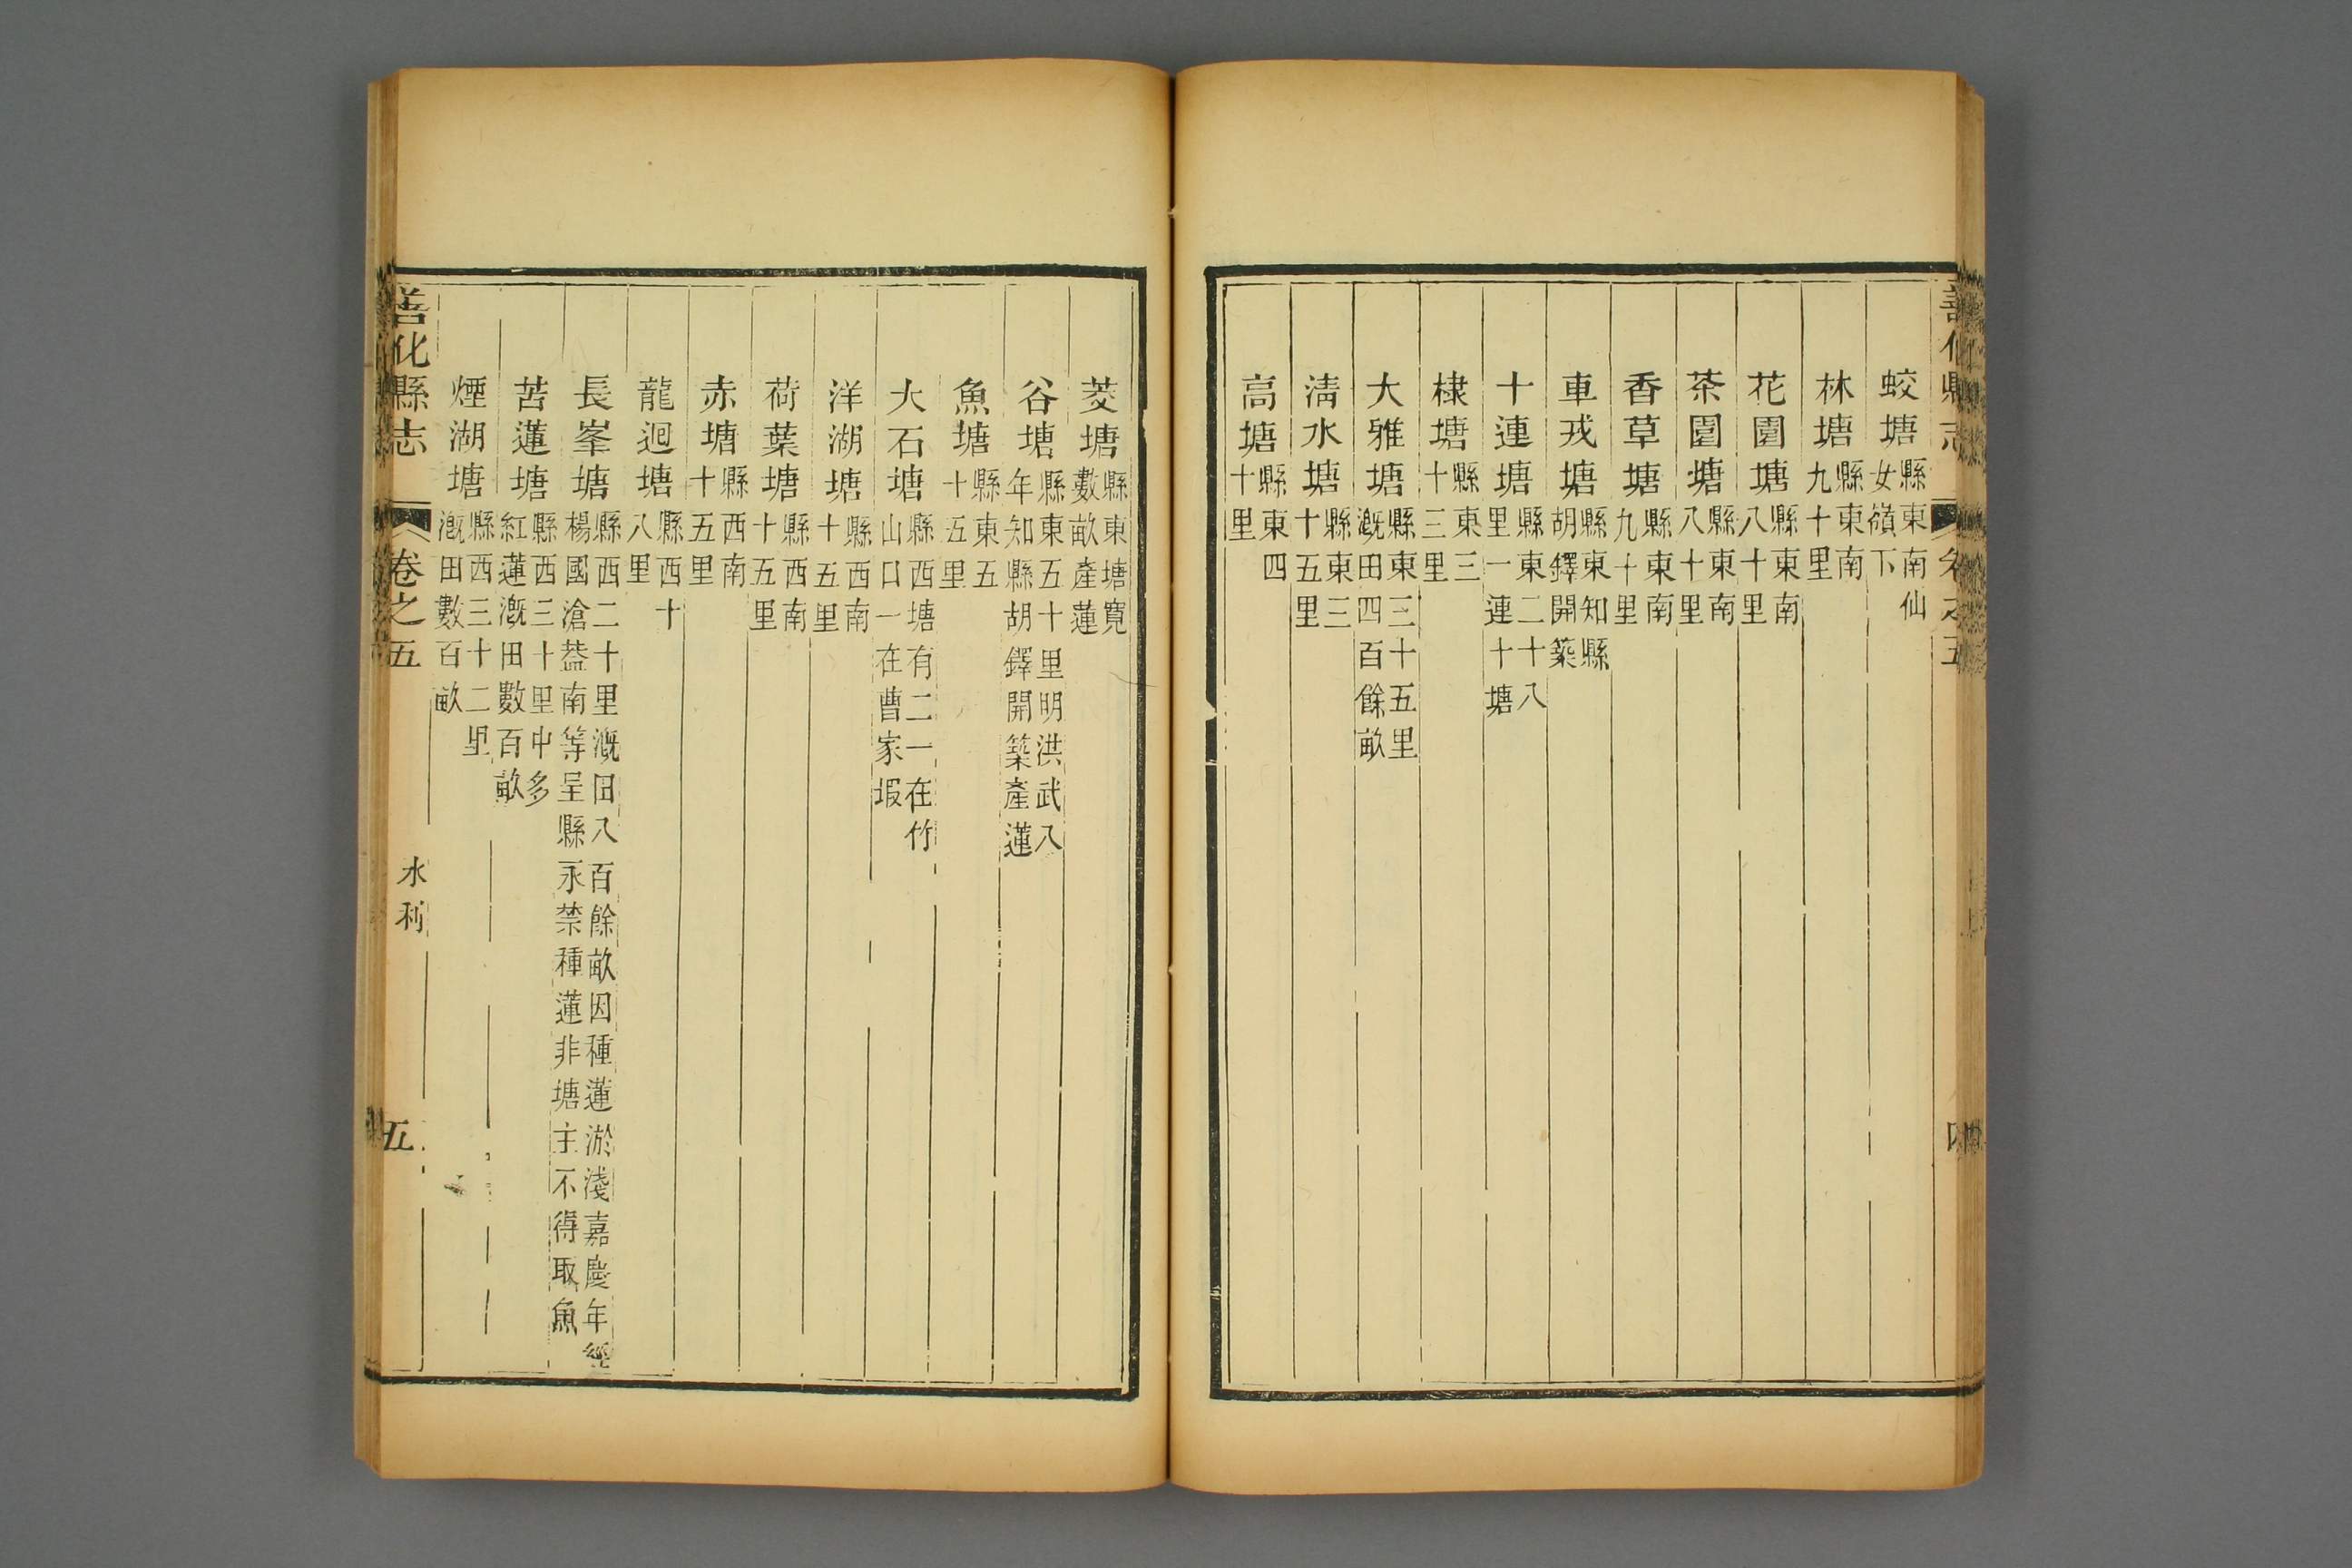 蛟塘縣東南仙女嶺下
林塘縣東南九十里
花園塘縣東南八十里
茶園塘縣東南八十里
香草塘縣東南九十里
車戎塘縣東知縣胡鐸開築
十連塘縣東二十八里一連十塘
棣塘縣東三十三里
大雅塘縣東三十五里漑田四百餘畝
淸水塘縣東三十五里
高塘縣東四十里
菱塘縣東塘寬數畝產蓮
谷塘縣東五十里明洪武八年知縣胡鐸開築產蓮
魚塘縣東五十五里
大石塘縣西塘有二一在竹山口一在曹家塅
洋湖塘縣西南十五里
荷葉塘縣西南十五里
赤塘縣西南十五里
龍迴塘縣西十八里
長峯塘縣西二十里漑田八百餘畝因種蓮淤淺嘉慶年經楊國滄葢南等呈縣永禁種蓮非塘主不得取魚
苦蓮塘縣西三十里中多紅蓮漑田數百畝
煙湖塘縣西三十二里漑田數百畝
善化縣志 卷之五 水利 五